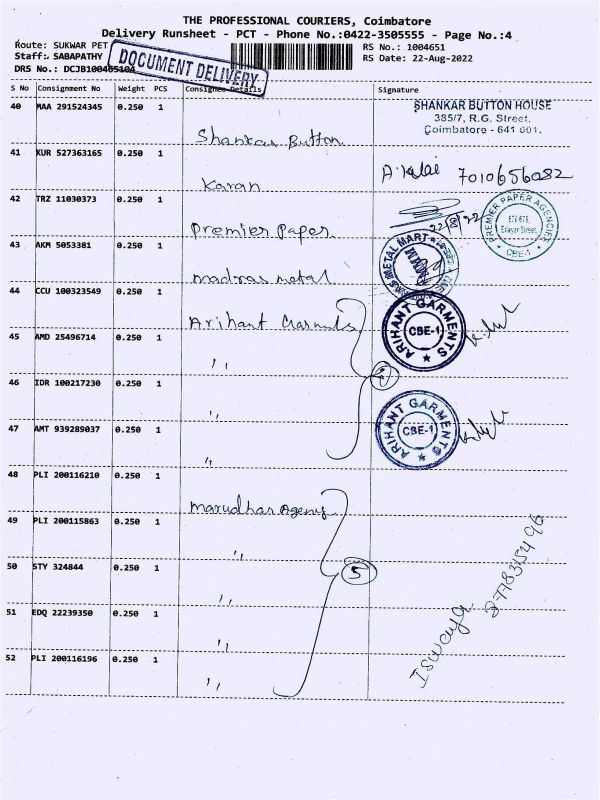 THE PROFESSIONAL COURIERS, Coimbatore
Delivery Runsheet - PCT - Phone No.:0422-3505555 - Page No.:4
Route: SUKWAR PET
RS No.: 1004651
Staff: SABAPATHY
RS Date: 22-Aug-2022
DRS No.: DCJB100465104
DOCUMENT DELIVERY
S No Consignment No Weight PCS Consignee Details Signature
40 MAA 291524345 0.250 1
Shankar Button
SHANKAR BUTTON HOUSE
385/7, R.G. Street,
Coimbatore - 641 001.
41 KUR 527363165 0.250 1
Karan
7010656082
42 TRZ 11030373 0.250 1
Premier Paper
22/8/22
PREMIER PAPER AGENCIES
CBE-1
43 AKM 5053381 0.250 1
madras metal
METAL MART
MMM
44 CCU 100323549 0.250 1
Arihant Garments
ARIHANT GARMENTS
CBE-1
45 AMD 25496714 0.250 1
"
46 IDR 100217230 0.250 1
"
4
ARIHANT GARMENTS
CBE-1
47 AMT 939289037 0.250 1
"
48 PLI 200116210 0.250 1
Marudhar Agency
49 PLI 200115863 0.250 1
"
50 STY 324844 0.250 1
"
5
51 EDQ 22239350 0.250 1
"
52 PLI 200116196 0.250 1
"